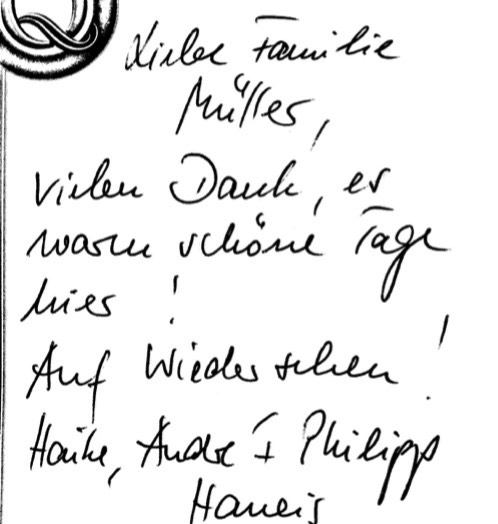 Liebe Familie
Müller,
vielen Dank, es
waren schöne Tage
hier !
Auf Wiedersehen !
Heike, André + Philipp